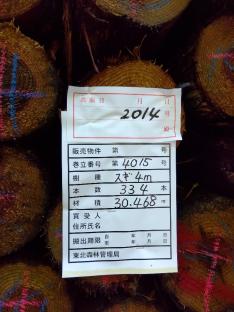 月 日
2014 号
殿
販売物件 第 号
巻立番号 第4015号
樹 種 スギ4m
本 数 334 本
材 積 30.468 m³
買 受 人
住所氏名
搬出期限 自 年 月 日
至 年 月 日
東北森林管理局